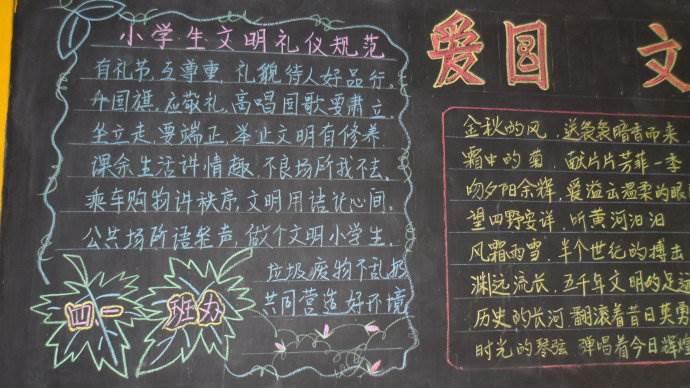 小学生文明礼仪规范
有礼节,互尊重,礼貌待人好品行。
升国旗,应敬礼,高唱国歌要肃立,
坐立走,要端正,举止文明有修养
课余生活讲情趣,不良场所我不去。
乘车购物讲秩序,文明用语花心间。
公共场所语轻声,做个文明小学生。
垃圾废物不乱扔
共同营造好环境
四一 班办
爱国 文
金秋的风,送袅袅暗香而来
霜中的菊,献片片芳菲一季
吻夕阳余辉,爱溢出温柔的眼
望四野安详,听黄河汩汩
风霜雨雪,半个世纪的搏击
渊远流长,五千年文明的足
历史的长河,翻滚着昔日英勇
时光的琴弦,弹唱着今日辉煌